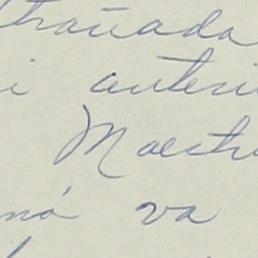 trañada
i anteri
Maestr
má va